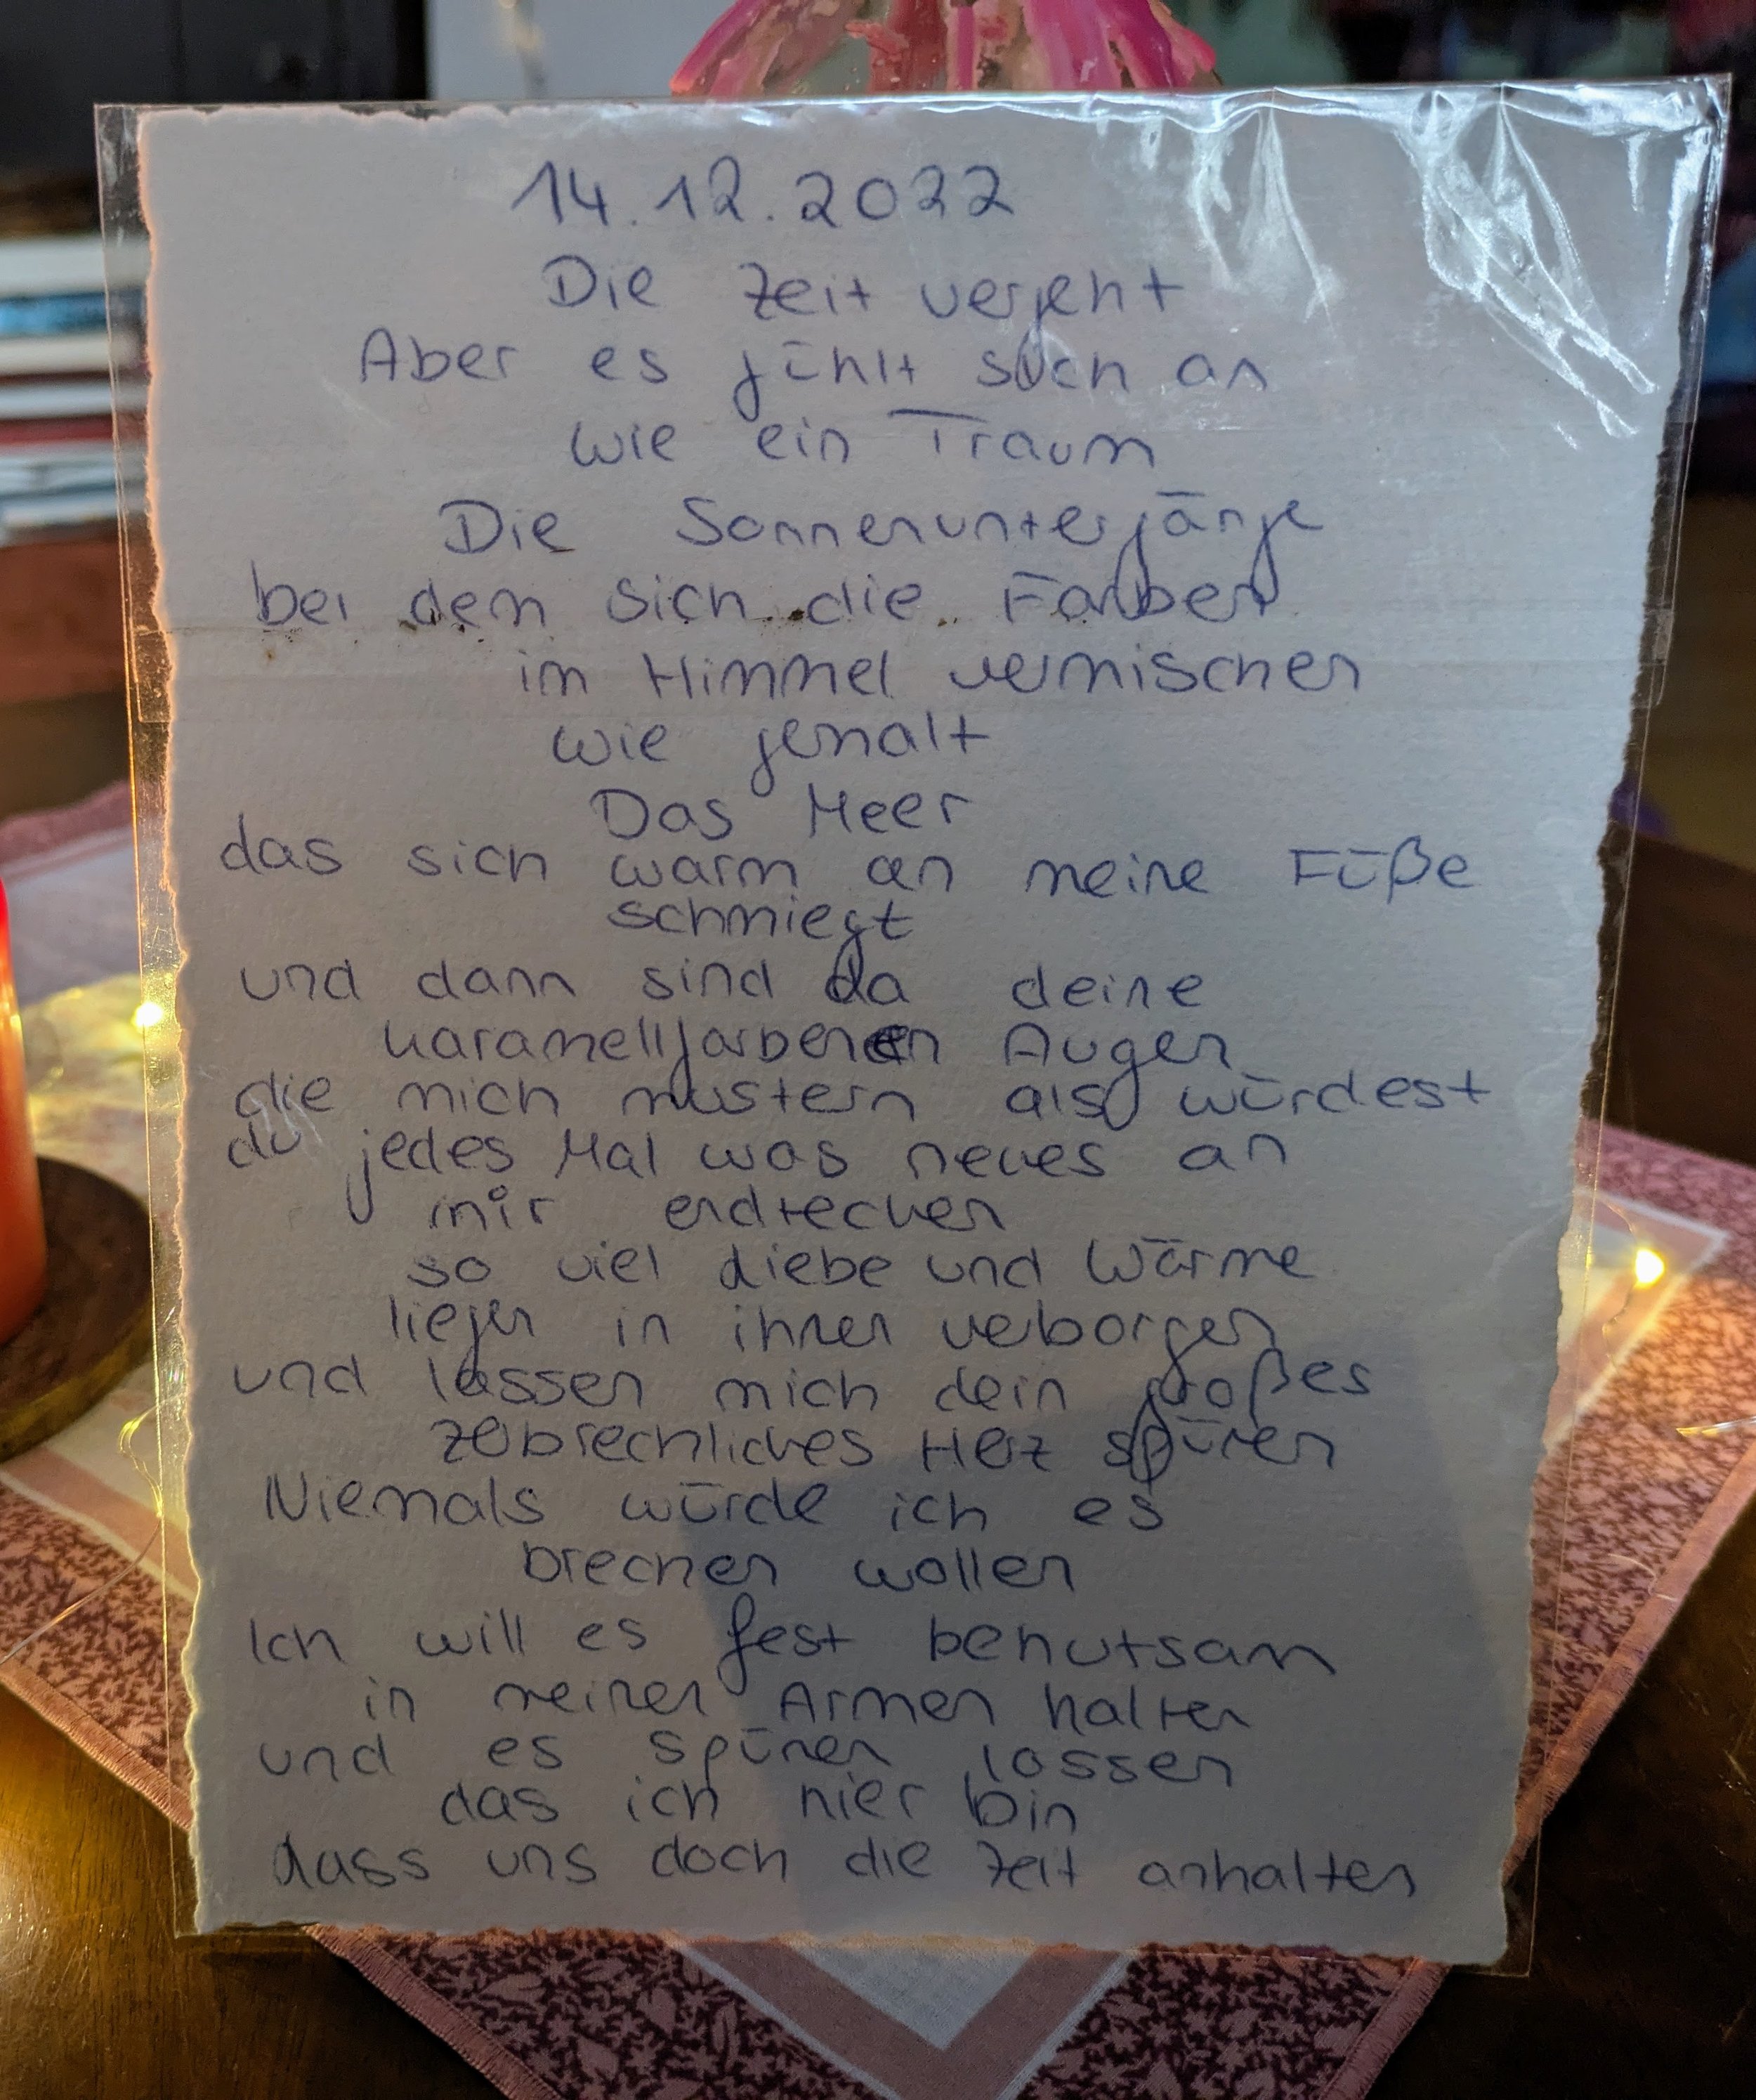 14.12.2022
Die Zeit vergeht
Aber es fühlt sich an
wie ein Traum
Die Sonnenuntergänge
bei dem sich die Farben
im Himmel vermischen
wie gemalt
Das Meer
das sich warm an meine Füße
schmiegt
und dann sind da deine
karamellfarbenen Augen
die mich mustern als würdest
du jedes Mal was neues an
mir endtecken
so viel Liebe und Wärme
liegen in ihnen veborgen
und lassen mich dein großes
zebrechliches Herz spüren
Niemals würde ich es
brechen wollen
Ich will es fest behutsam
in meinen Armen halten
und es spüren lassen
das ich hier bin
lass uns doch die Zeit anhalten